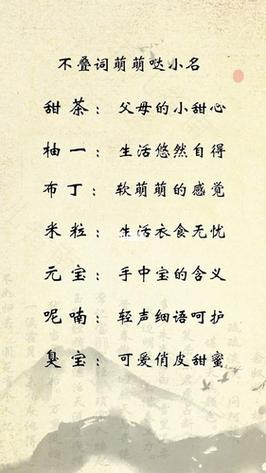 不叠词萌萌哒小名
甜茶：父母的小甜心
柚一：生活悠然自得
布丁：软萌萌的感觉
米粒：生活衣食无忧
元宝：手中宝的含义
呢喃：轻声细语呵护
臭宝：可爱俏皮甜蜜